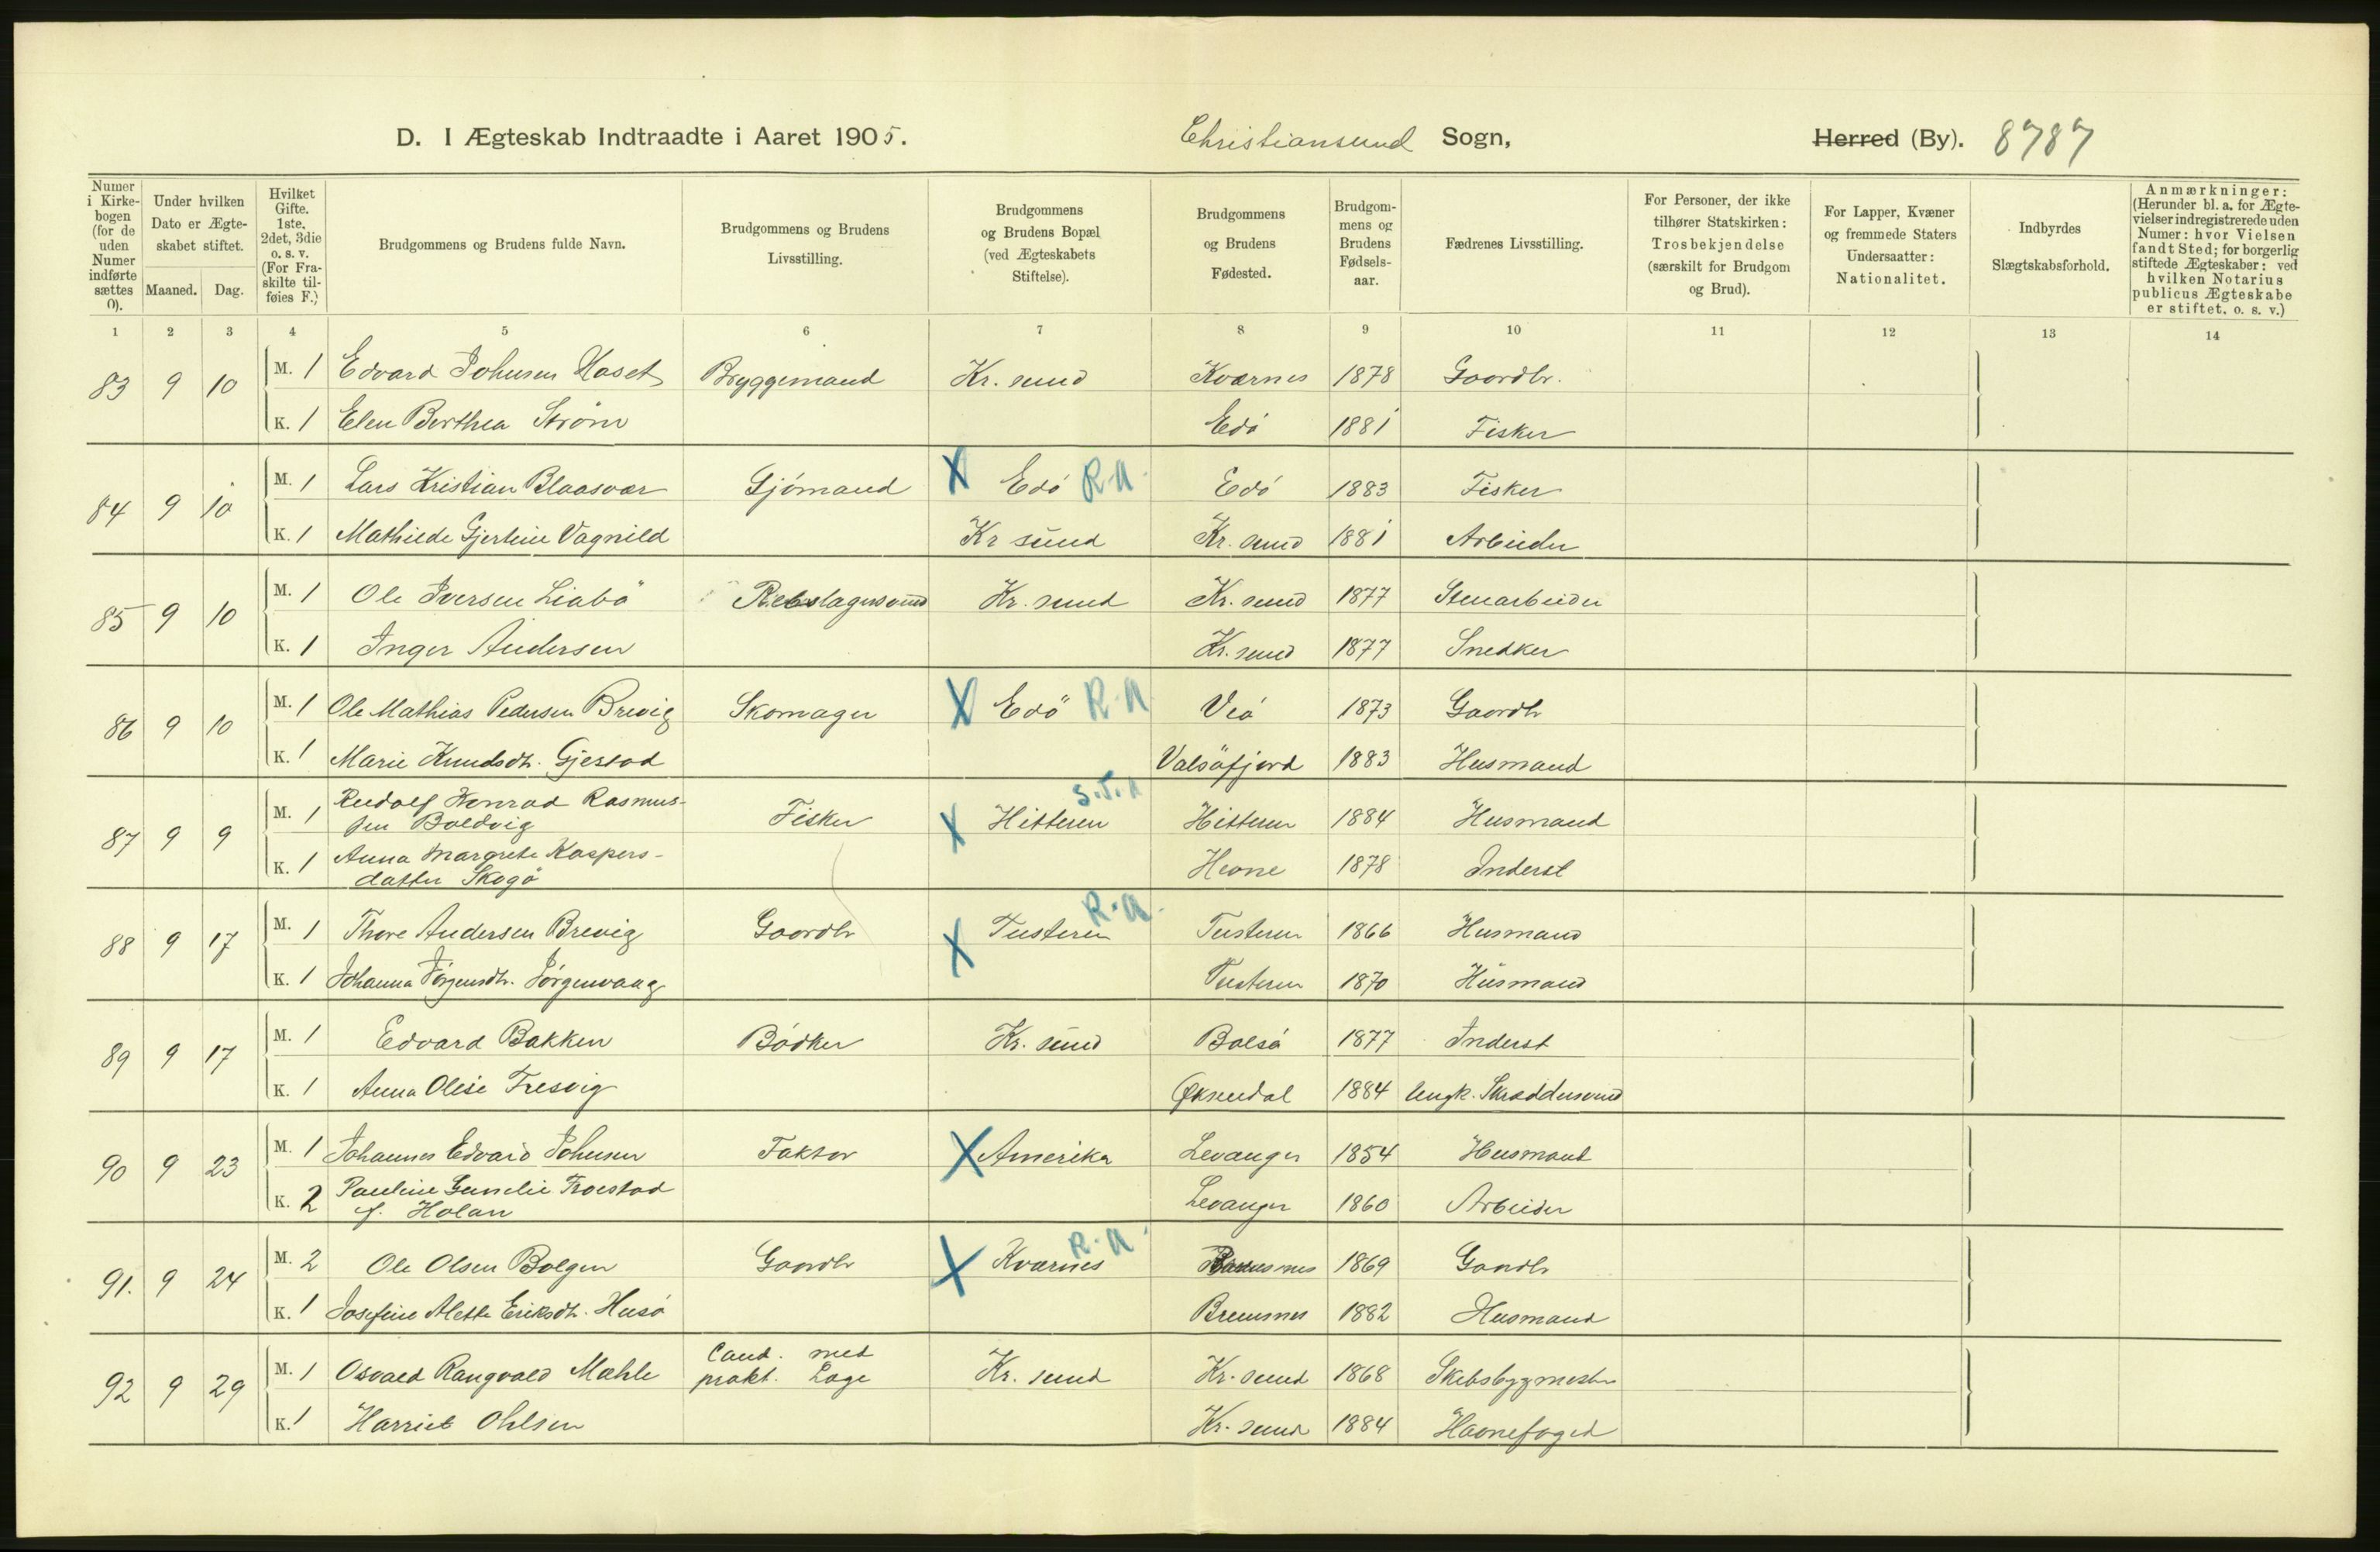 D. I Ægteskab Indtraadte i Aaret 1905. Christiansund Sogn, Herred (By). 8787
Numer i Kirkebogen (for de uden Numer indførte sættes 0).
Under hvilken Dato er Ægteskabet stiftet. Maaned. Dag.
Hvilket Gifte. 1ste, 2det, 3die o. s. v. (For Fraskilte tilføies F.)
Brudgommens og Brudens fulde Navn.
Brudgommens og Brudens Livsstilling.
Brudgommens og Brudens Bopæl (ved Ægteskabets Stiftelse).
Brudgommens og Brudens Fødested.
Brudgommens og Brudens Fødselsaar.
Fædrenes Livsstilling.
For Personer, der ikke tilhører Statskirken: Trosbekjendelse (særskilt for Brudgom og Brud).
For Lapper, Kvæner og fremmede Staters Undersaatter: Nationalitet.
Indbyrdes Slægtskabsforhold.
Anmærkninger: (Herunder bl. a. for Ægtevielser indregistrerede uden Numer: hvor Vielsen fandt Sted; for borgerlig stiftede Ægteskaber: ved hvilken Notarius publicus Ægteskabet er stiftet. o. s. v.)
1 2 3 4 5 6 7 8 9 10 11 12 13 14
83 9 10 M. 1 Edvard Johnsen Haset Bryggemand Kr. sund Kværnes 1878 Gaardbr.
K. 1 Elen Berthea Strøm Edö 1881 Fisker
84 9 10 M. 1 Lars Kristian Blaasvær Sjömand X Edö R.A. Edö 1883 Fisker
K. 1 Mathilde Gjertine Vagnild Kr sund Kr. sund 1881 Arbeider
85 9 10 M. 1 Ole Iversen Liabö Rebslagersvend Kr. sund Kr. sund 1877 Stenarbeider
K. 1 Inger Andersen Kr. sund 1877 Snedker
86 9 10 M. 1 Ole Mathias Pedersen Brevig Skomager X Edö R.A Veö 1873 Gaardb
K. 1 Marie Knudsdt. Gjestad Valsöfjord 1883 Husmand
87 9 9 M. 1 Rudolf Konrad Rasmussen Boldvig Fisker X Hitteren S.T.A Hitteren 1884 Husmand
K. 1 Anna Margrete Kaspersdatter Skogö Hevne 1878 Inderst
88 9 17 M. 1 Thore Andersen Brevig Gaardb X Tusteren R.A. Tusteren 1866 Husmand
K. 1 Johanna Jörgensdt. Jörgenvaag Tusteren 1870 Husmand
89 9 17 M. 1 Edvard Bakken Bödker Kr. sund Bolsö 1877 Inderst
K. 1 Anna Olise Tresvig Øksendal 1884 Ungk. Skræddersvend
90 9 23 M. 1 Johannes Edvard Johnsen Faktor X Amerika Levanger 1854 Husmand
K. 2 Pauline
f. Holan Levanger 1860 Arbeider
91. 9 24 M. 2 Ole Olsen Bolgen Gaardb X Kværnes R.A. 1869 Gaardb
K. 1 Josefine Alette Eriksdt. Husö Bremsnes 1882 Husmand
92 9 29 M. 1 Osvald Rangvald Mæhle Cand. med prakt. Læge Kr. sund Kr. sund 1868 Skibsbygmester
K. 1 Harriet Ohlsen Kr. sund 1884 Havnefoged